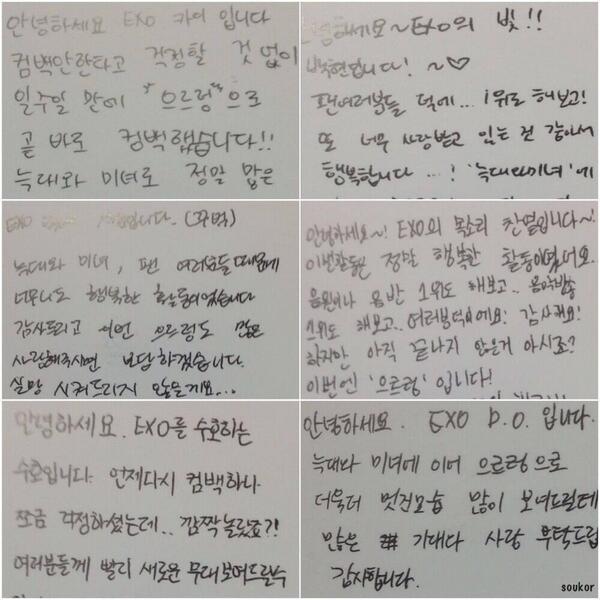 안녕하세요 EXO 카이 입니다
컴백안한다고 걱정할 것 없이
일주일 만에 "으르렁"으로
곧 바로 컴백했습니다!!
늑대와 미녀로 정말 많은
안녕하세요~EXO의 빛!!
백현입니다! ~♡
팬여러분들 덕에... 1위도 해보고!
또 너무 사랑받고 있는 것 같아서
행복합니다...! '늑대와미녀'에
EXO 입니다. (꾸벅)
늑대와 미녀, 팬 여러분들 때문에
너무나도 행복한 활동이었습니다
감사드리고 이번 으르렁도 많은
사랑해주시면 보답하겠습니다.
실망 시켜드리지 않을게요...
안녕하세요~! EXO의 목소리 찬열입니다~!
이번활동은 정말 행복한 활동이었어요.
음원이나 음반 1위도 해보고.. 음악방송
1위도 해보고.. 여러분덕이에요! 감사해요!
하지만 아직 끝나지 않은거 아시죠?
이번엔 '으르렁' 입니다!
안녕하세요. EXO를 수호하는
수호입니다. 언제다시 컴백하나
조금 걱정하셨는데.. 깜짝놀랐죠?!
여러분들께 빨리 새로운 무대보여드릴수
안녕하세요. EXO D.O. 입니다.
늑대와 미녀에 이어 으르렁으로
더욱더 멋진모습 많이 보여드릴테
많은 기대와 사랑 부탁드립
감사합니다.
soukor